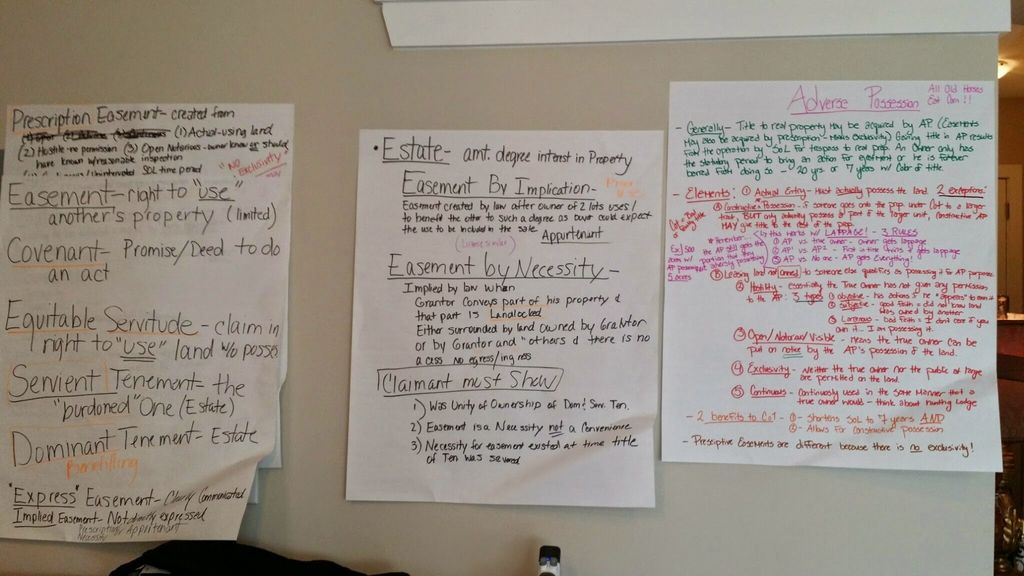 Prescription Easement - created from
(1) Actual-using land
(2) Hostile-no permission (3) Open Notorious-owner know or should
have known w/reasonable inspection
SOL time period
"NO Exclusivity"
Easement - right to "use"
another's property (limited)
Covenant - Promise/Deed to do
an act
Equitable Servitude - claim in
right to "use" land w/o posses
Servient Tenement = the
"burdoned" One (Estate)
Dominant Tenement - Estate
Benefitting
"Express" Easement - Clearly Communicated
Implied Easement - Not directly expressed
Prescription/Appurtenant
Necessity
• Estate - amt. degree interest in Property
Easement By Implication -
Prior Uses
Easement created by law after owner of 2 lots uses 1
to benefit the other to such a degree as buyer could expect
the use to be included in the sale
Appurtenant
Easement by Necessity -
Implied by law when
Grantor Conveys part of his property &
that part is Landlocked
Either surrounded by land owned by Grantor
or by Grantor and "others & there is no
access no egress/ingress
Claimant must Show
1) Was Unity of Ownership of Dom/Serv. Ten.
2) Easement is a Necessity not a Convenience
3) Necessity for easement existed at time title
of Ten was severed
Adverse Possession
All Old Horses
Eat Corn!!
- Generally - Title to real property may be acquired by AP (Easements
may also be acquired by prescription - minus exclusivity) Gaining title in AP results
from the operation by SoL for trespass to real prop. An owner only has
the statutory period to bring an action for ejectment or he is forever
barred from doing so - 20 yrs or 7 years w/ Color of title.
- Elements: ① Actual Entry - Must actually possess the land. 2 exceptions:
Ⓐ Constructive Possession - if someone goes onto the prop under CoT to a larger
tract, BUT only actually possess a part of the larger unit, Constructive AP
MAY give title to the rest of the prop.
LAPPAGE! - 3 RULES
① AP vs true owner - Owner gets lappage
② AP vs AP2 - First in time
gets lappage
③ AP vs No one - AP gets Everything!
* Remember -
the AP still gets the
portion that they
actually possessed
5 acres
Ⓑ Leasing land to someone else qualifies as possessing it for AP purposes
② Hostility - essentially the True owner has not given any permission
to the AP: 3 types ① objective - his actions & he "appears" to own it
② Subjective - good faith = did not know land
was owned by another
③ Larcenous - bad Faith = I don't care if you
own it... I am possessing it.
③ Open/Notorious/Visible - means the true owner can be
put on notice by the AP's possession of the land.
④ Exclusivity - Neither the true owner nor the public at large
are permitted on the land.
⑤ Continuous - Continuously used in the same manner that a
true owner would - think about hunting lodge
- 2 benefits to CoT - ① - Shortens SoL to 7 years AND
② - Allows for Constructive possession
- Prescriptive Easements are different because there is no exclusivity!